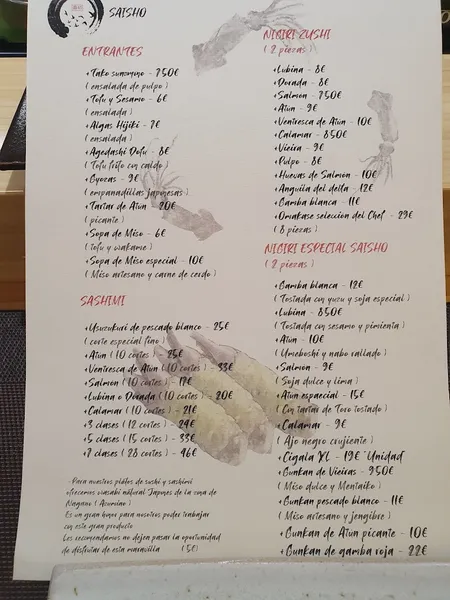 SAISHO
ENTRANTES
+Tako sunomono - 750€
( ensalada de pulpo )
+Tofu y Sesamo - 6€
( ensalada )
+Algas Hijiki - 7€
( ensalada )
+Agedashi Dofu - 8€
( Tofu frito con caldo )
+Gyozas - 9€
( empanadillas japonesas )
+Tartar de Atun - 20€
( picante )
+Sopa de Miso - 6€
( tofu y wakame )
+Sopa de Miso especial - 10€
( Miso artesano y carne de cerdo )
SASHIMI
+Usuzukuri de pescado blanco - 25€
( corte especial fino )
+Atun ( 10 cortes ) - 25€
+Ventresca de Atun ( 10 cortes ) - 33€
+Salmon ( 10 cortes ) - 17€
+Lubina o Dorada ( 10 cortes ) - 20€
+Calamar ( 10 cortes ) - 21€
+3 clases ( 12 cortes ) - 24€
+5 clases ( 15 cortes ) - 33€
+7 clases ( 28 cortes ) - 46€
· Para nuestros platos de sushi y sashimi
ofrecemos wasabi natural Japones de la zona de
Nagano ( Azumino )
Es un gran honor para nosotros poder trabajar
con este gran producto
Les recomendamos no dejen pasar la oportunidad
de disfrutar de esta maravilla ( 5€)
NIGIRI ZUSHI
( 2 piezas )
+Lubina - 8€
+Dorada - 8€
+Salmon - 750€
+Atun - 9€
+Ventresca de Atun - 10€
+Calamar - 850€
+Vieira - 9€
+Pulpo - 8€
+Huevas de Salmon - 10€
+Anguila del delta - 12€
+Gamba blanca - 11€
+Omakase seleccion del Chef - 29€
( 8 piezas )
NIGIRI ESPECIAL SAISHO
( 2 piezas )
+Gamba blanca - 12€
( Tostada con yuzu y soja especial )
+Lubina - 850€
( Tostada con sesamo y pimienta )
+Atun - 10€
( Umeboshi y nabo rallado )
+Salmon - 9€
( Soja dulce y lima )
+Atun espaecial - 15€
( Con tartar de Toro tostado )
+Calamar - 9€
( Ajo negro crujiente )
+Cigala XL - 19€ *Unidad
+Gunkan de Vieiras - 950€
( Miso dulce y Mentaiko )
+Gunkan pescado blanco - 11€
( Miso artesano y jengibre )
+Gunkan de Atun picante - 10€
+Gunkan de gamba roja - 22€